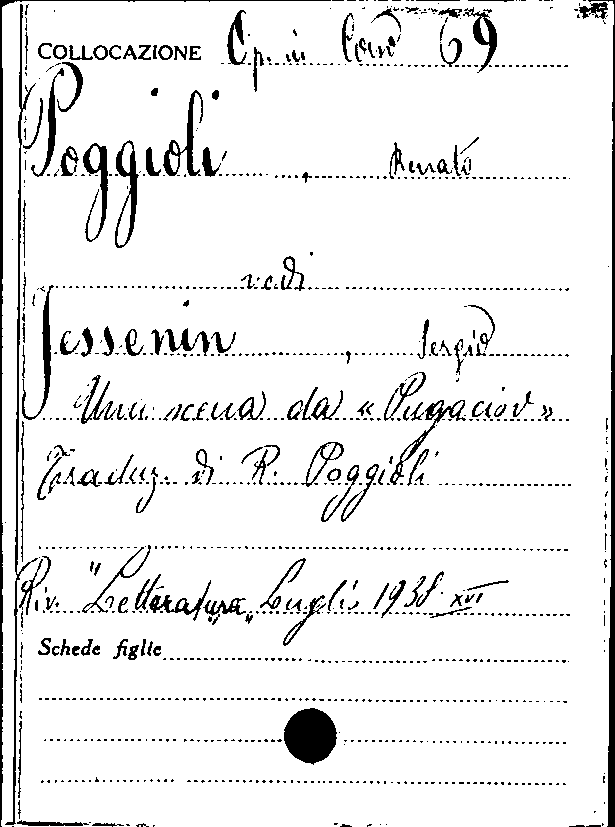 COLLOCAZIONE Op. in Corso 69
Poggioli, Renato
vedi
Jessenin, Sergio
Una scena da « Pugaciov »
Traduz. di R. Poggioli
Riv. "Letteratura" Luglio 1938 XVI
Schede figlie